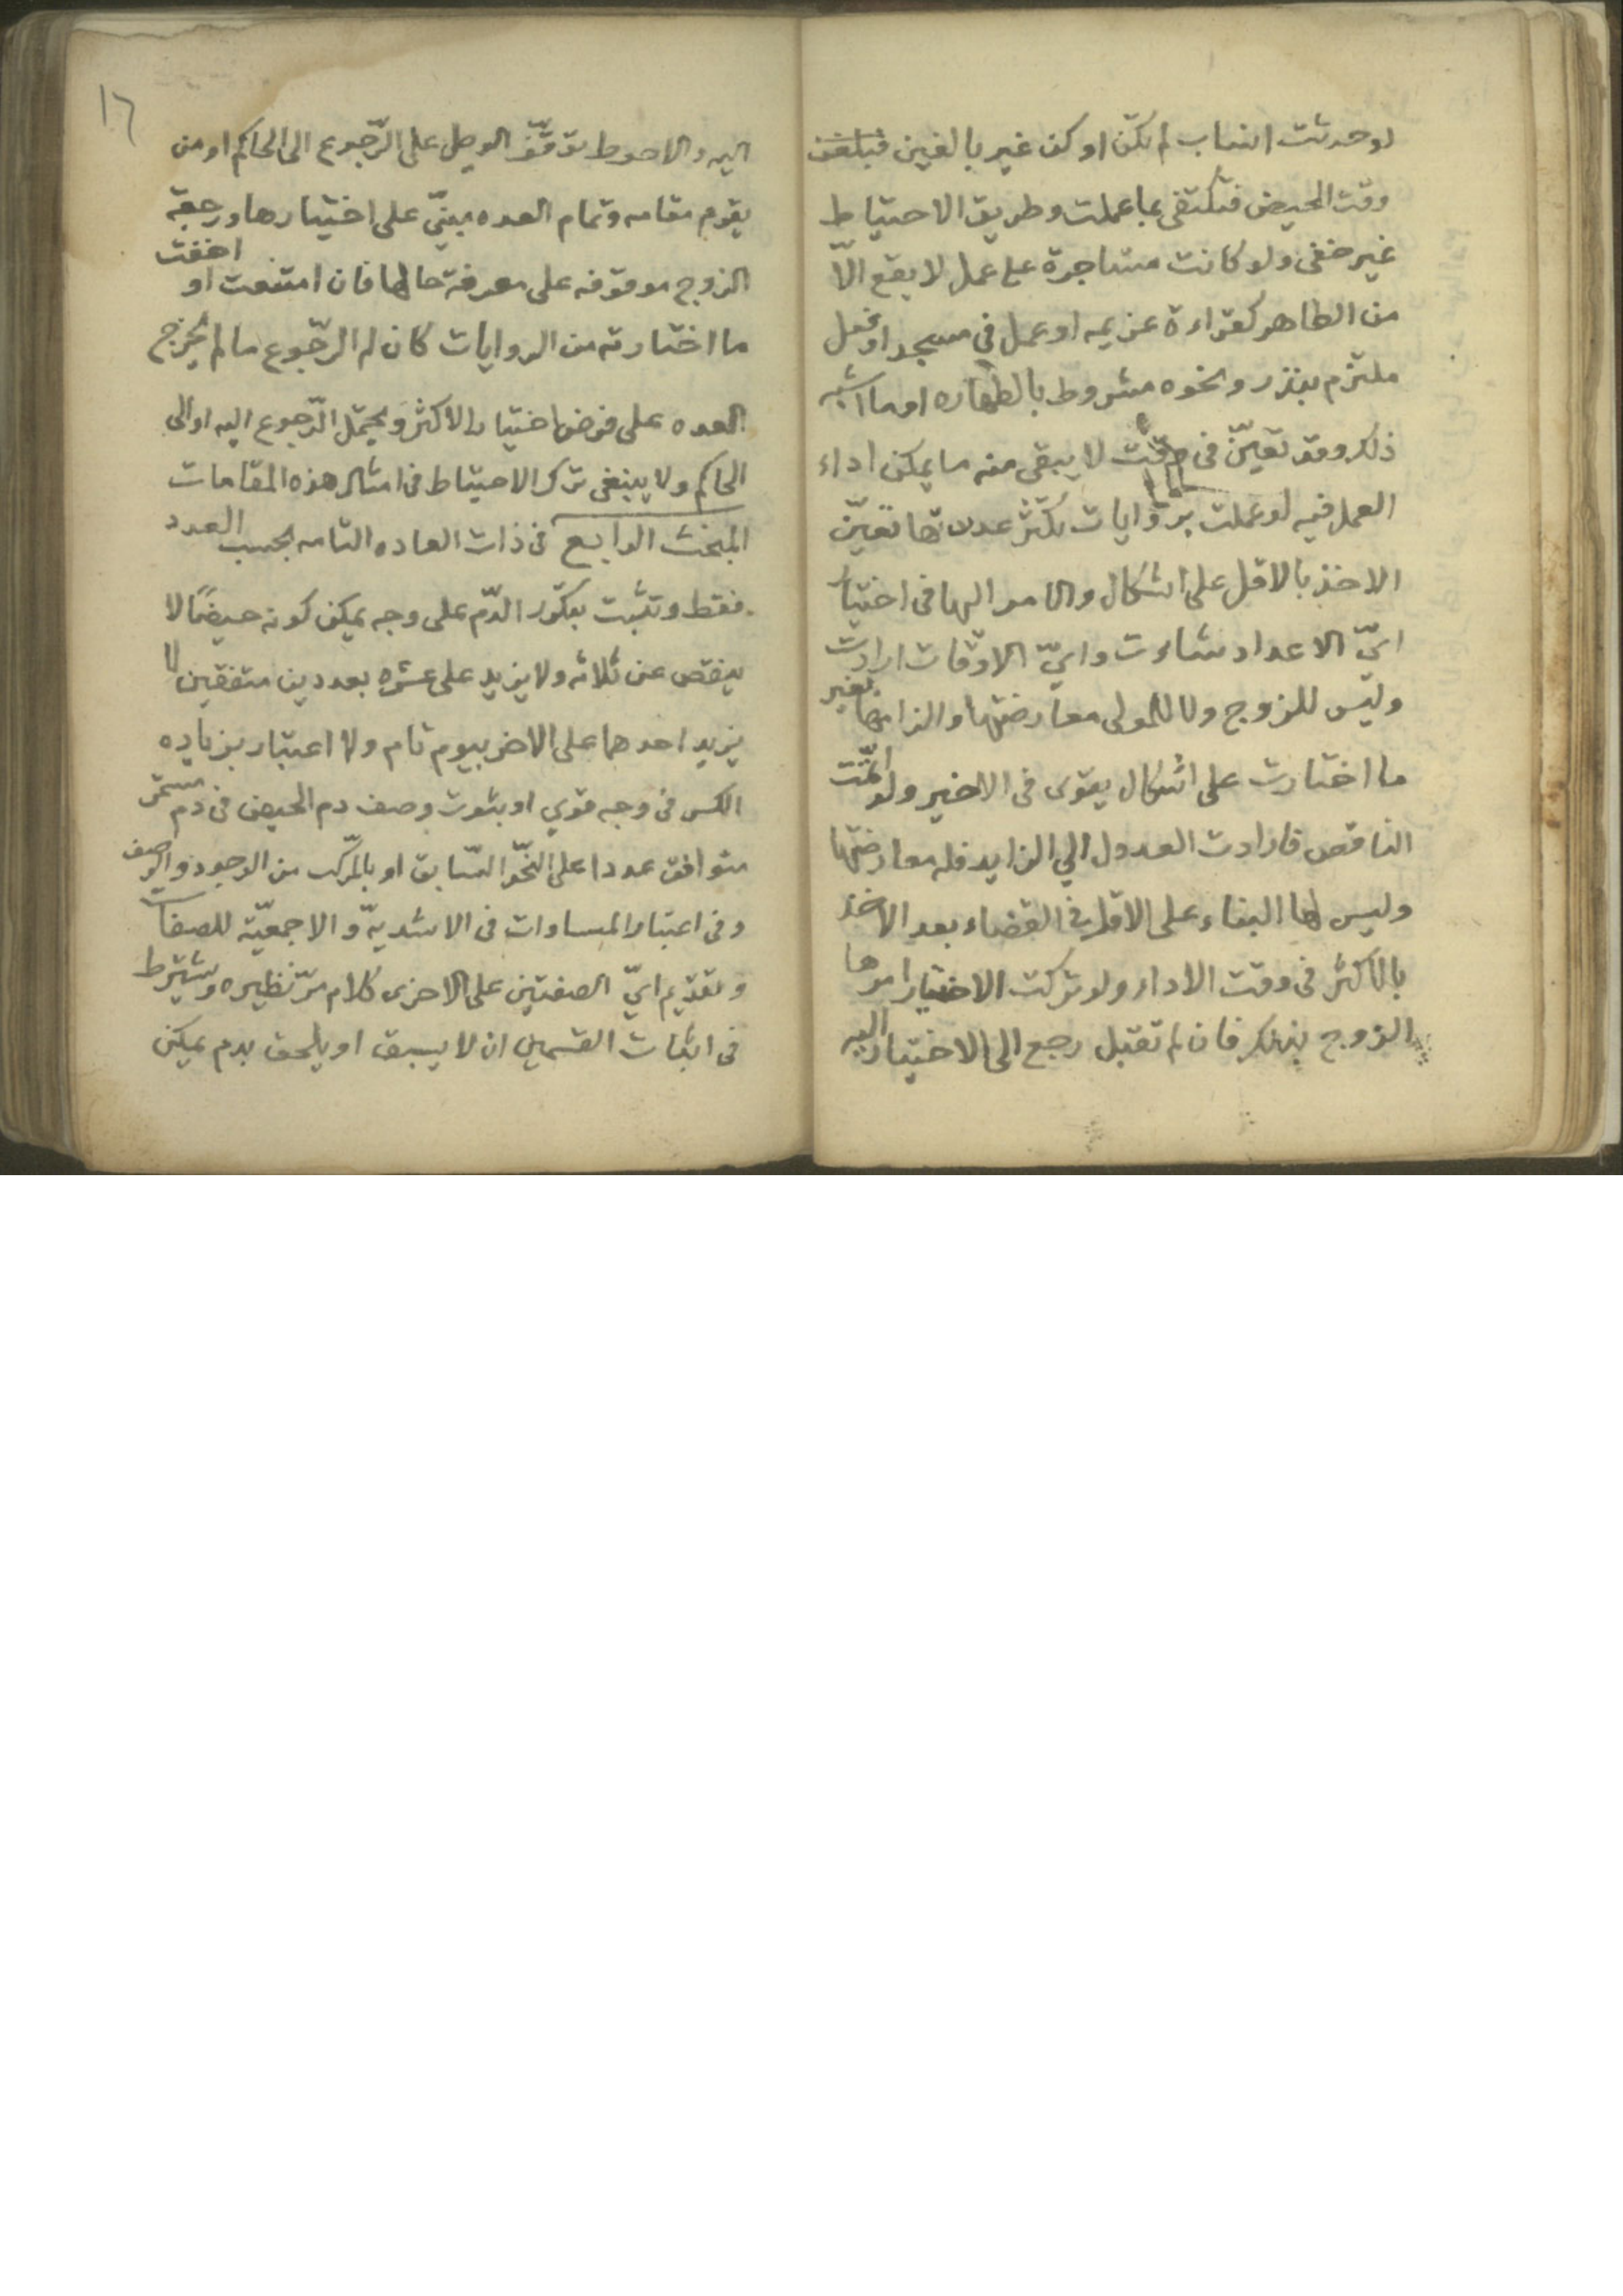 لو حدثت انساب لم تكن او كن غير بالغين فبلغن
وقت الحيض فتكتفى بما عملت وطريق الاحتياط
غير خفى ولو كانت مستاجرة على عمل لا يقع الّا
من الطاهر كقراءة عزيمه او عمل فى مسجد او فعل
ملتزم بنذر ونحوه مشروط بالطهاره او ما اشبه
ذلك وقد تعيّن فى وقت لا يبقى منه ما يمكن اداء
العمل فيه لو عملت بروايات تكثر عددها تعيّن
الاخذ بالاقل على اشكال والامر اليها فى اختيار
ايّ الاعداد شاءت وايّ الاوقات ارادت
وليس للزوج ولا للمولى معارضتها والزامها بغير
ما اختارت على اشكال يقوى فى الاخير ولو اتمّت
الناقص فارادت العدول الي الزايد فله معارضتها
وليس لها البناء على الاقل فى القضاء بعد الاخذ
بالاكثر فى وقت الاداء ولو تركت الاختيار امرها
الزوج بذلك فان لم تقبل رجع الى الاختيار اليه
١٦
اليه والاحوط توقّف الوصل على الرّجوع الى الحاكم او من
يقوم مقامه وتمام العده مبنيّ على اختيارها ورجعة
الزوج موقوفه على معرفة حالها فان امتنعت او اخفت
ما اختارته من الروايات كان له الرّجوع ما لم يخرج
العده على فرض اختيار الاكثر ويحتمل الرّجوع اليه او الى
الحاكم ولا ينبغى ترك الاحتياط فى امثال هذه المقامات
المبحث الرابع فى ذات العاده التامه بحسب العدد
فقط وتثبت بتكرّر الدّم على وجه يمكن كونه حيضًا لا
ينقص عن ثلاثه ولا يزيد على عشره بعددين متفقين لا
يزيد احدهما على الاخر بيوم تام ولا اعتبار بزياده
الكسر فى وجه قوي او بثبوت وصف دم الحيض فى دم مستمر
متوافق عددا على النحّو السّابق او بالمركّب من الوجود والوصف
وفى اعتبار المساوات فى الاشديّه والاجمعيّة للصفات
وتقديم ايّ الصفتين على الاخرى كلام مرّ نظيره ويشترط
فى اثبات القسمين ان لا يسبق او يلحق بدم يمكن